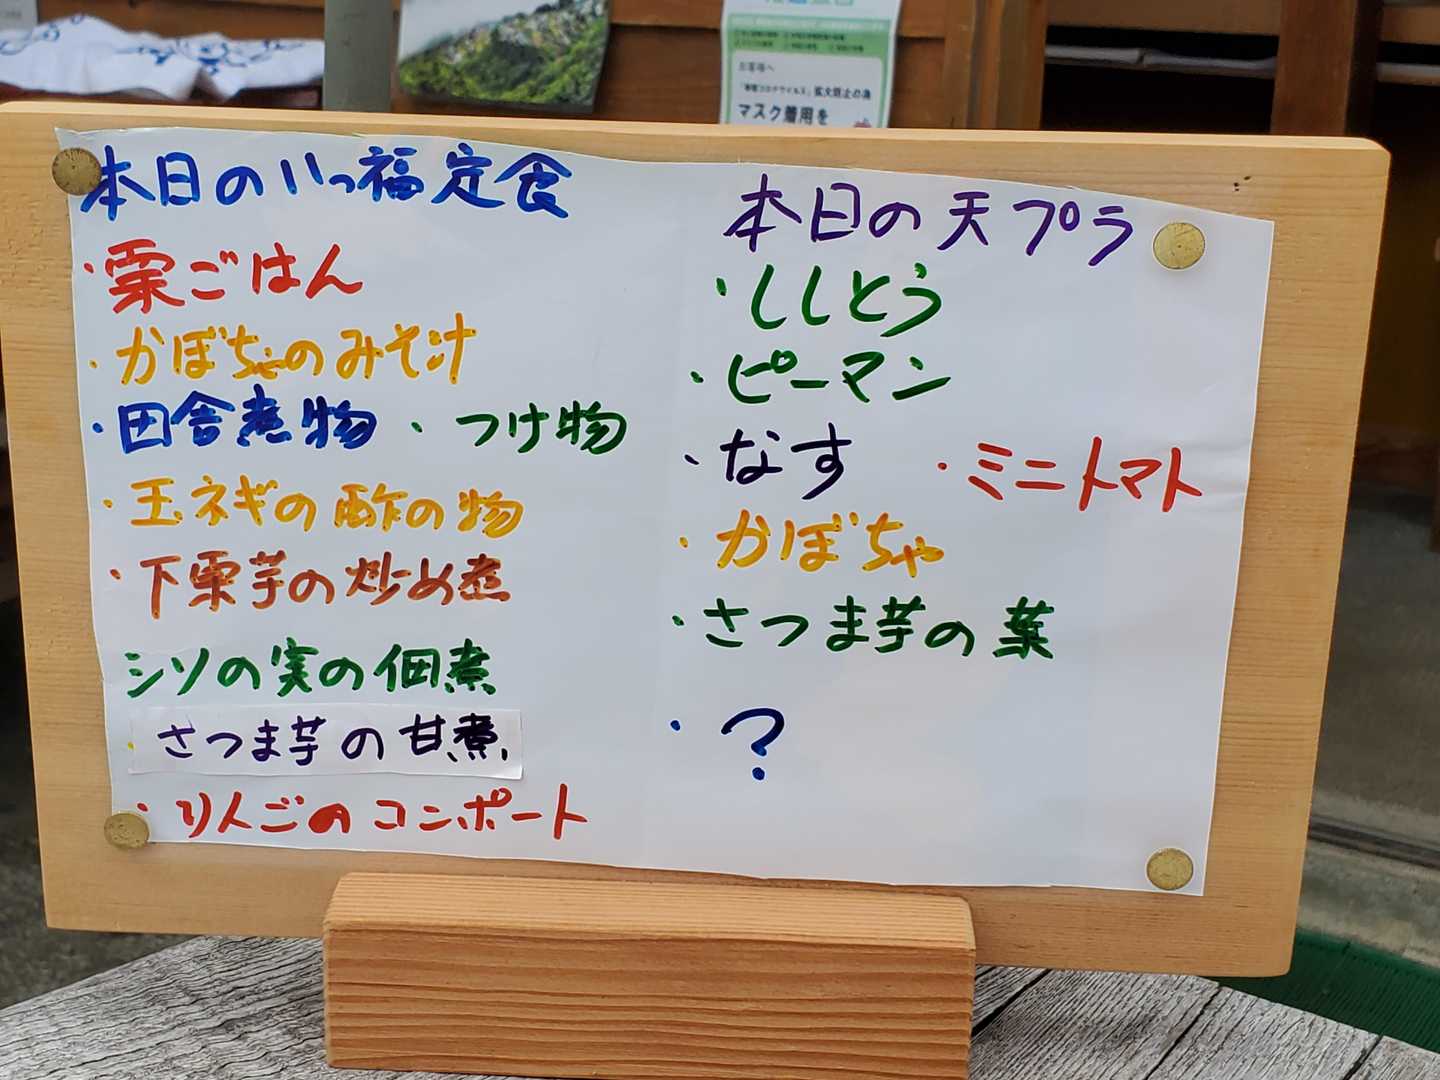 お客様へ
「新型コロナウイルス」拡大防止の為
マスク着用を
本日のいっ福定食
・栗ごはん
・かぼちゃのみそ汁
・田舎煮物 ・つけ物
・玉ネギの酢の物
・下栗芋の炒め煮
シソの実の佃煮
・さつま芋の甘煮
・りんごのコンポート
本日の天プラ
・ししとう
・ピーマン
・なす ・ミニトマト
・かぼちゃ
・さつま芋の葉
・?